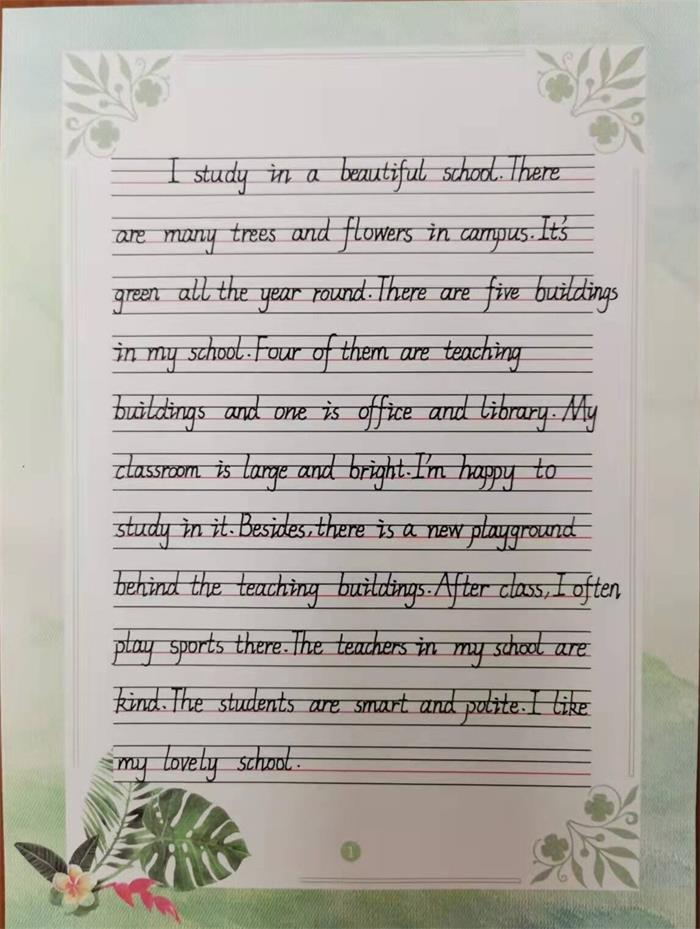 I study in a beautiful school. There
are many trees and flowers in campus. It's
green all the year round. There are five buildings
in my school. Four of them are teaching
buildings and one is office and library. My
classroom is large and bright. I'm happy to
study in it. Besides, there is a new playground
behind the teaching buildings. After class, I often
play sports there. The teachers in my school are
kind. The students are smart and polite. I like
my lovely school.
1